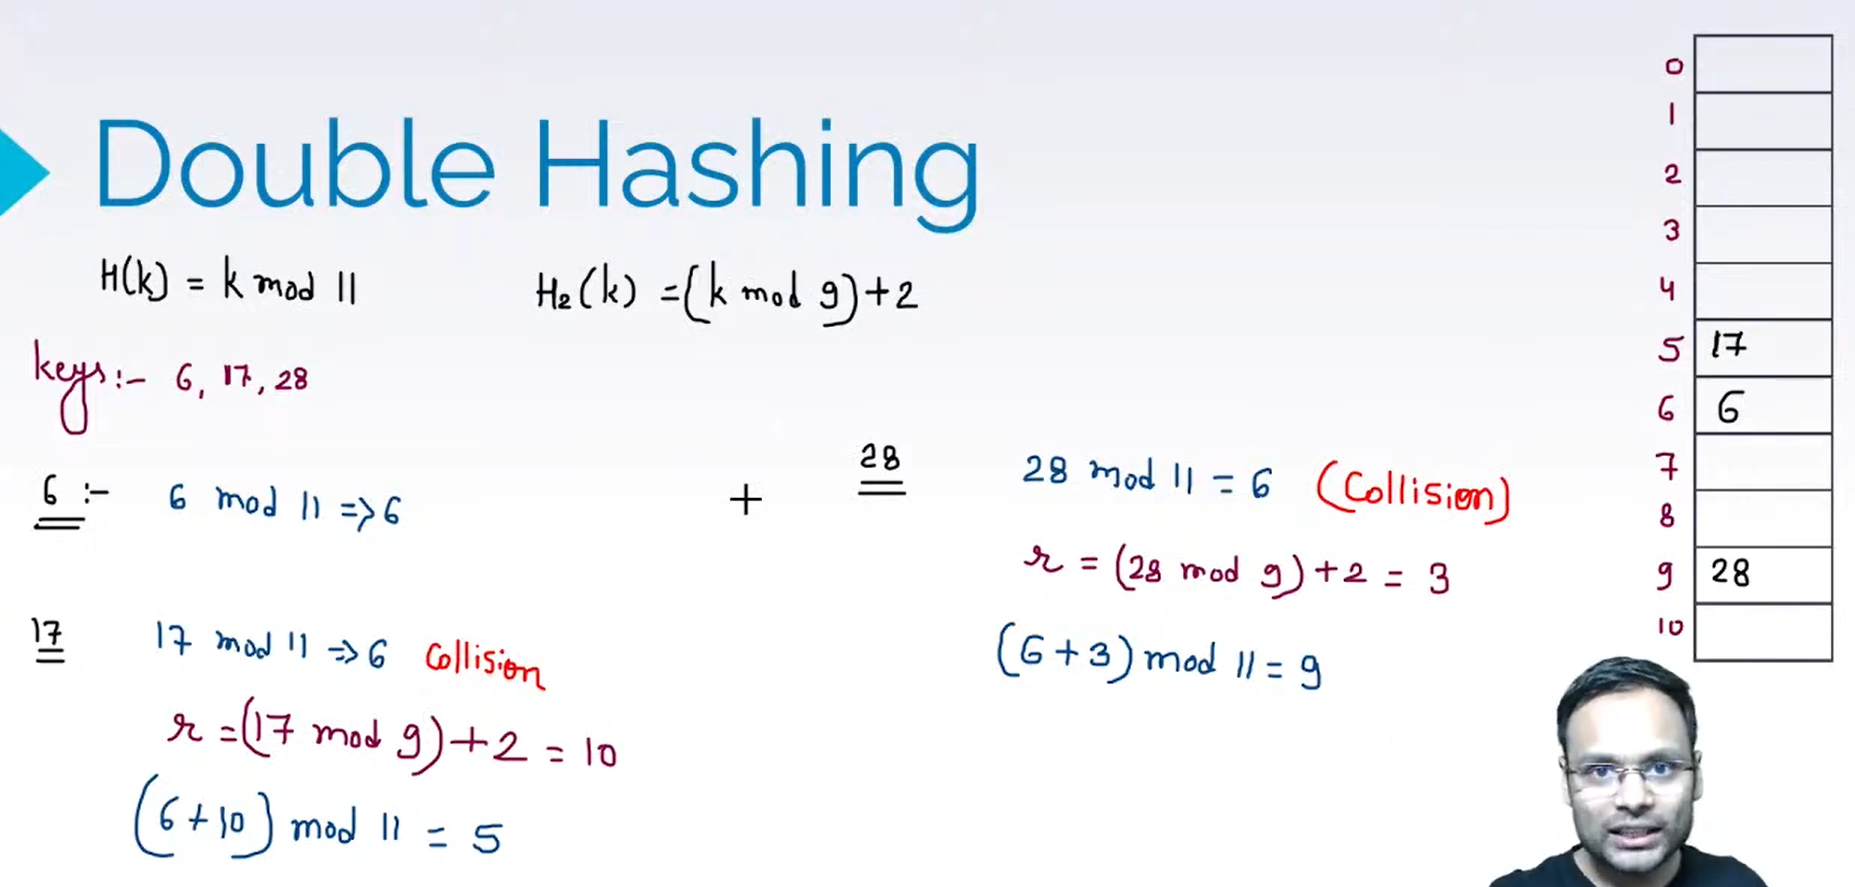 Double Hashing
H(k) = k mod 11
H₂(k) = (k mod 9)+2
keys:- 6, 17, 28
6 :- 6 mod 11 => 6
17 17 mod 11 => 6 Collision
r = (17 mod 9)+2 = 10
(6+10) mod 11 = 5
+
28 28 mod 11 = 6 (Collision)
r = (28 mod 9)+2 = 3
(6+3) mod 11 = 9
0
1
2
3
4
5 17
6 6
7
8
9 28
10